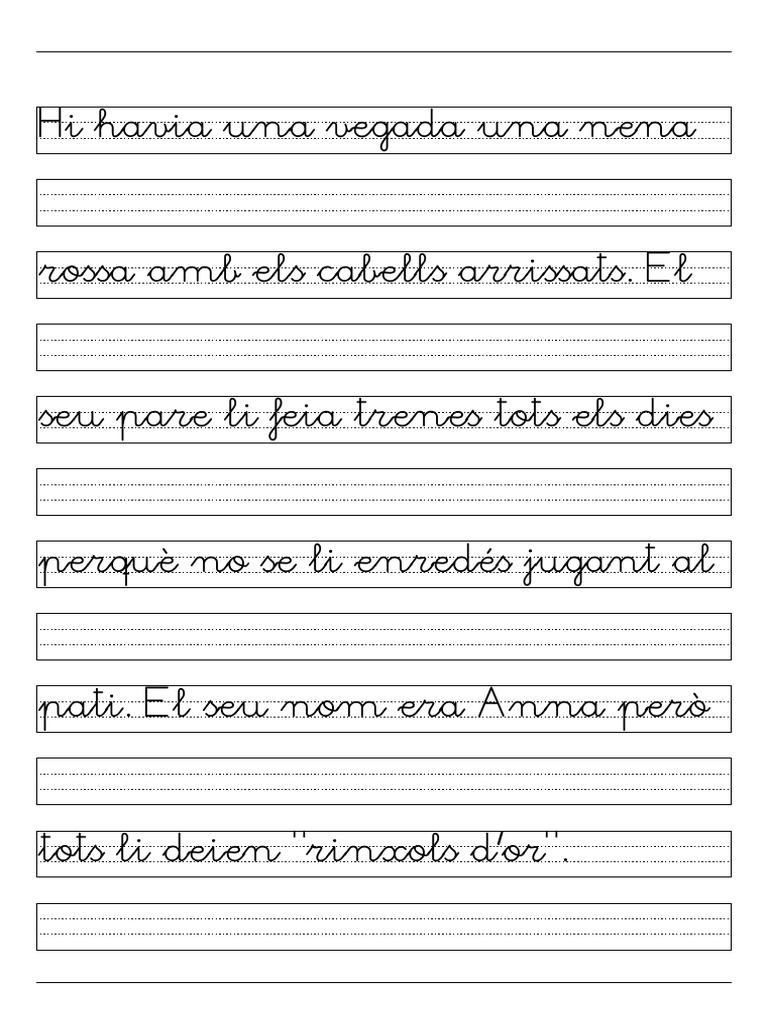 Hi havia una vegada una nena
rossa amb els cabells arrissats. El
seu pare li feia trenes tots els dies
perquè no se li enredés jugant al
pati. El seu nom era Anna però
tots li deien "rinxols d'or".